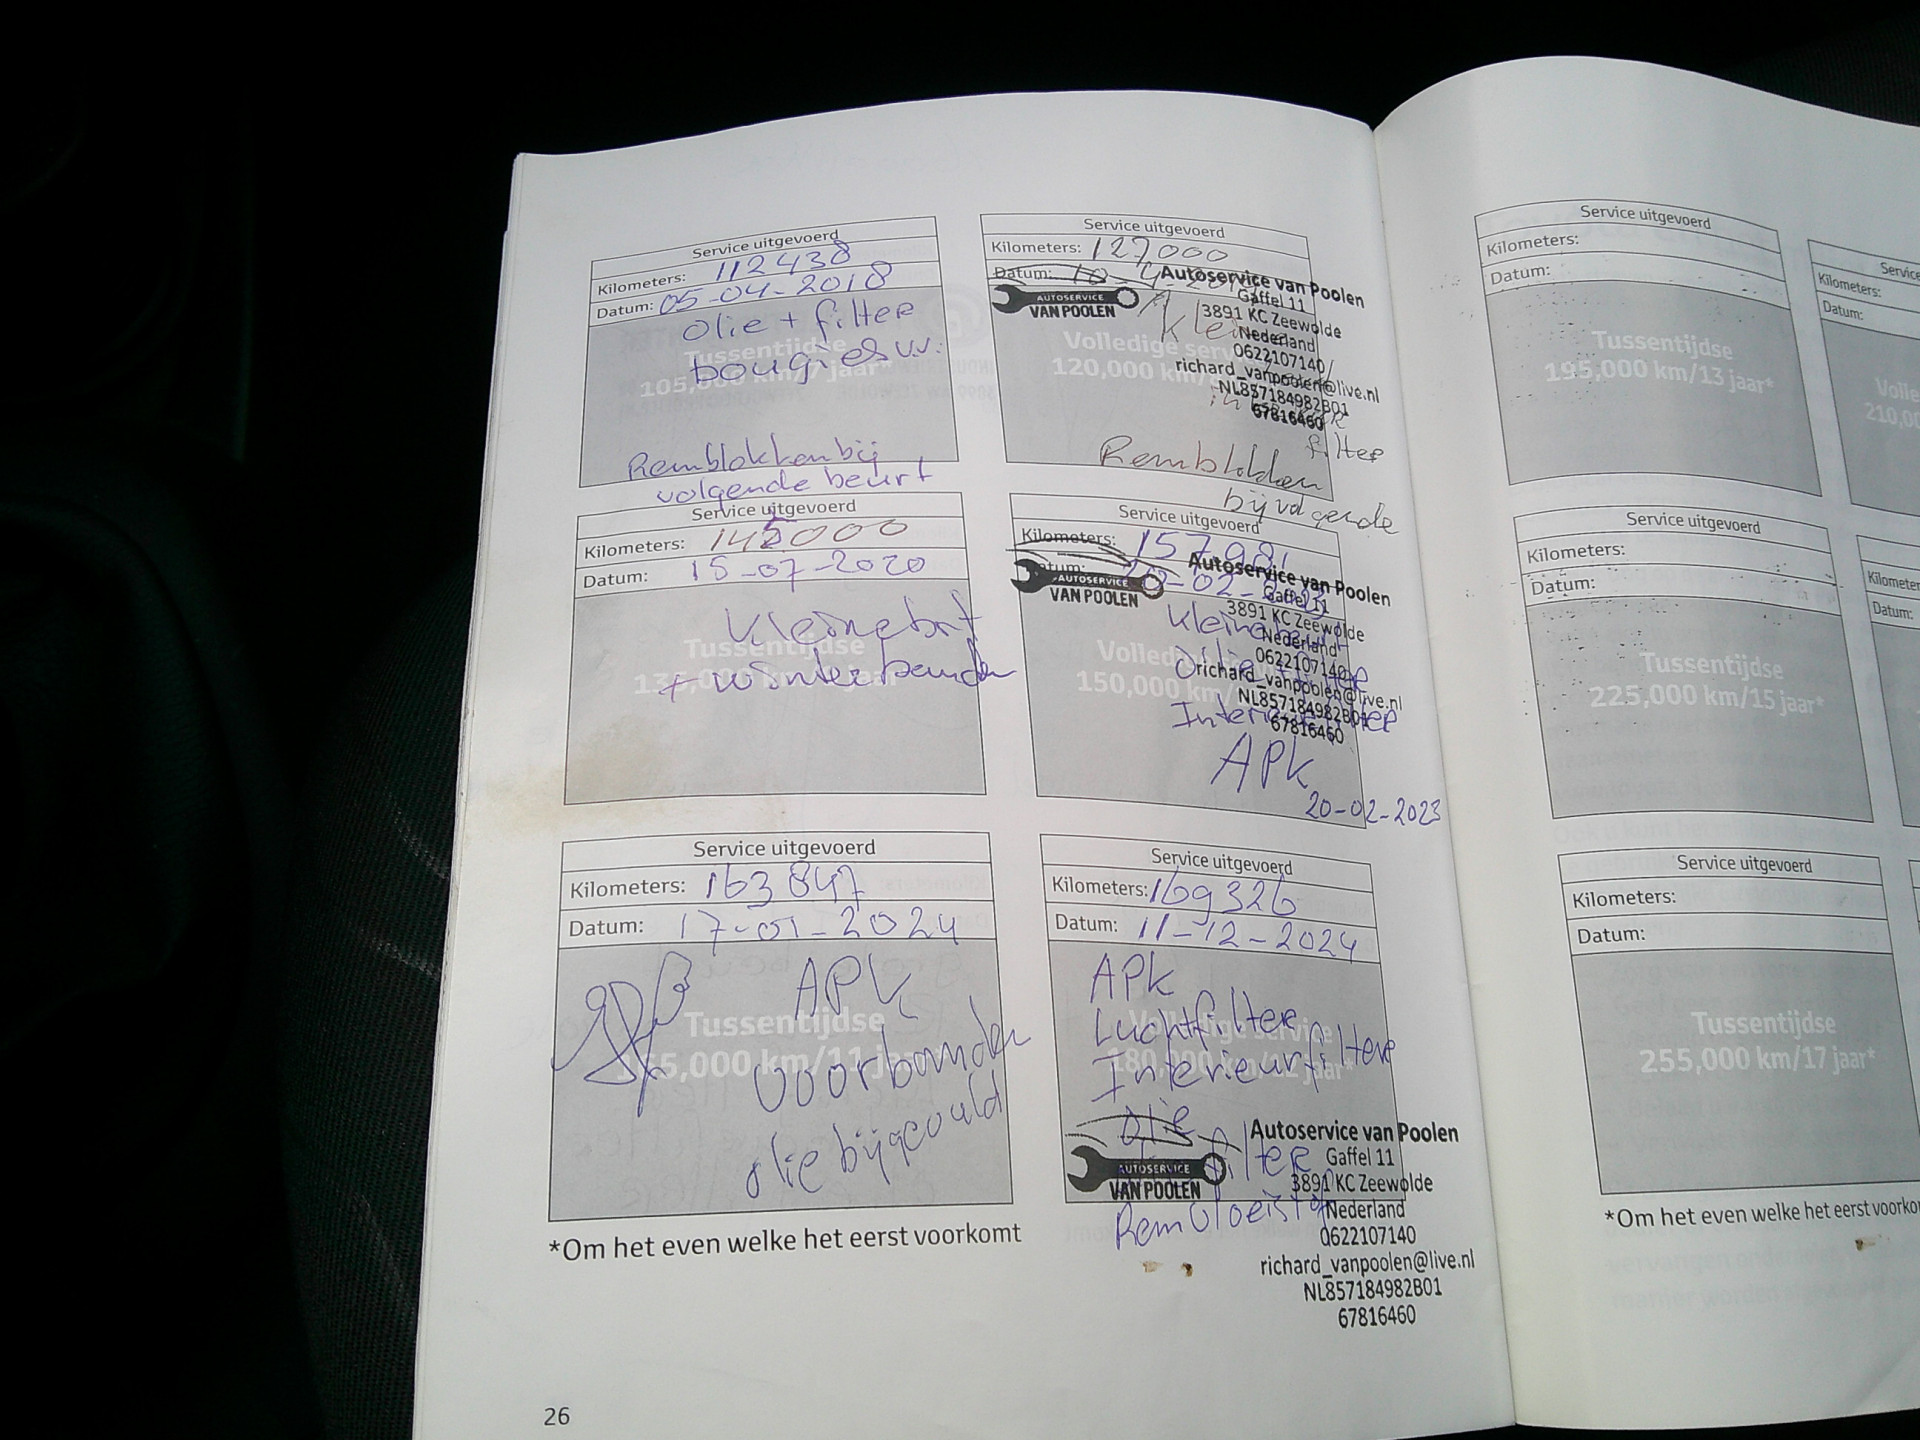 Service uitgevoerd
Kilometers: 112438
Datum: 05-04-2018
Olie + filter
bougies v.v.
Tussentijdse
105,000 km/7 jaar*
Remblokken bij
volgende beurt
Service uitgevoerd
Kilometers: 127000
Datum: 10
Autoservice van Poolen
Gaffel 11
3891 KC Zeewolde
Nederland
0622107140
richard_vanpoolen@live.nl
NL857184982B01
67816460
AUTOSERVICE
VAN POOLEN
Volledige
120,000 km/
filter
Remblokken
bij volgende
Service uitgevoerd
Kilometers: 145000
Datum: 15-07-2020
Kleinebrt
Tussentijdse
+ winterbanden
Service uitgevoerd
Kilometers: 15798
Autoservice van Poolen
Gaffel 11
3891 KC Zeewolde
Nederland
0622107140
richard_vanpoolen@live.nl
NL857184982B01
67816460
AUTOSERVICE
VAN POOLEN
150,000 km/
APK
20-02-2023
Service uitgevoerd
Kilometers: 163847
Datum: 17-01-2024
APK
Tussentijdse
65,000 km/11 jaar
voorbanden
olie bijgevuld
Service uitgevoerd
Kilometers: 169326
Datum: 11-12-2024
APK
Luchtfilter
Interieurfilter
180,000 km/12 jaar*
olie
filter
Remvloeistof
AUTOSERVICE
VAN POOLEN
Autoservice van Poolen
Gaffel 11
3891 KC Zeewolde
Nederland
0622107140
richard_vanpoolen@live.nl
NL857184982B01
67816460
*Om het even welke het eerst voorkomt
26
Service uitgevoerd
Kilometers:
Datum:
Tussentijdse
195,000 km/13 jaar*
Service
Kilometers:
Datum:
Service uitgevoerd
Kilometers:
Datum:
Tussentijdse
225,000 km/15 jaar*
Kilometer
Datum:
Service uitgevoerd
Kilometers:
Datum:
Tussentijdse
255,000 km/17 jaar*
*Om het even welke het eerst voorko